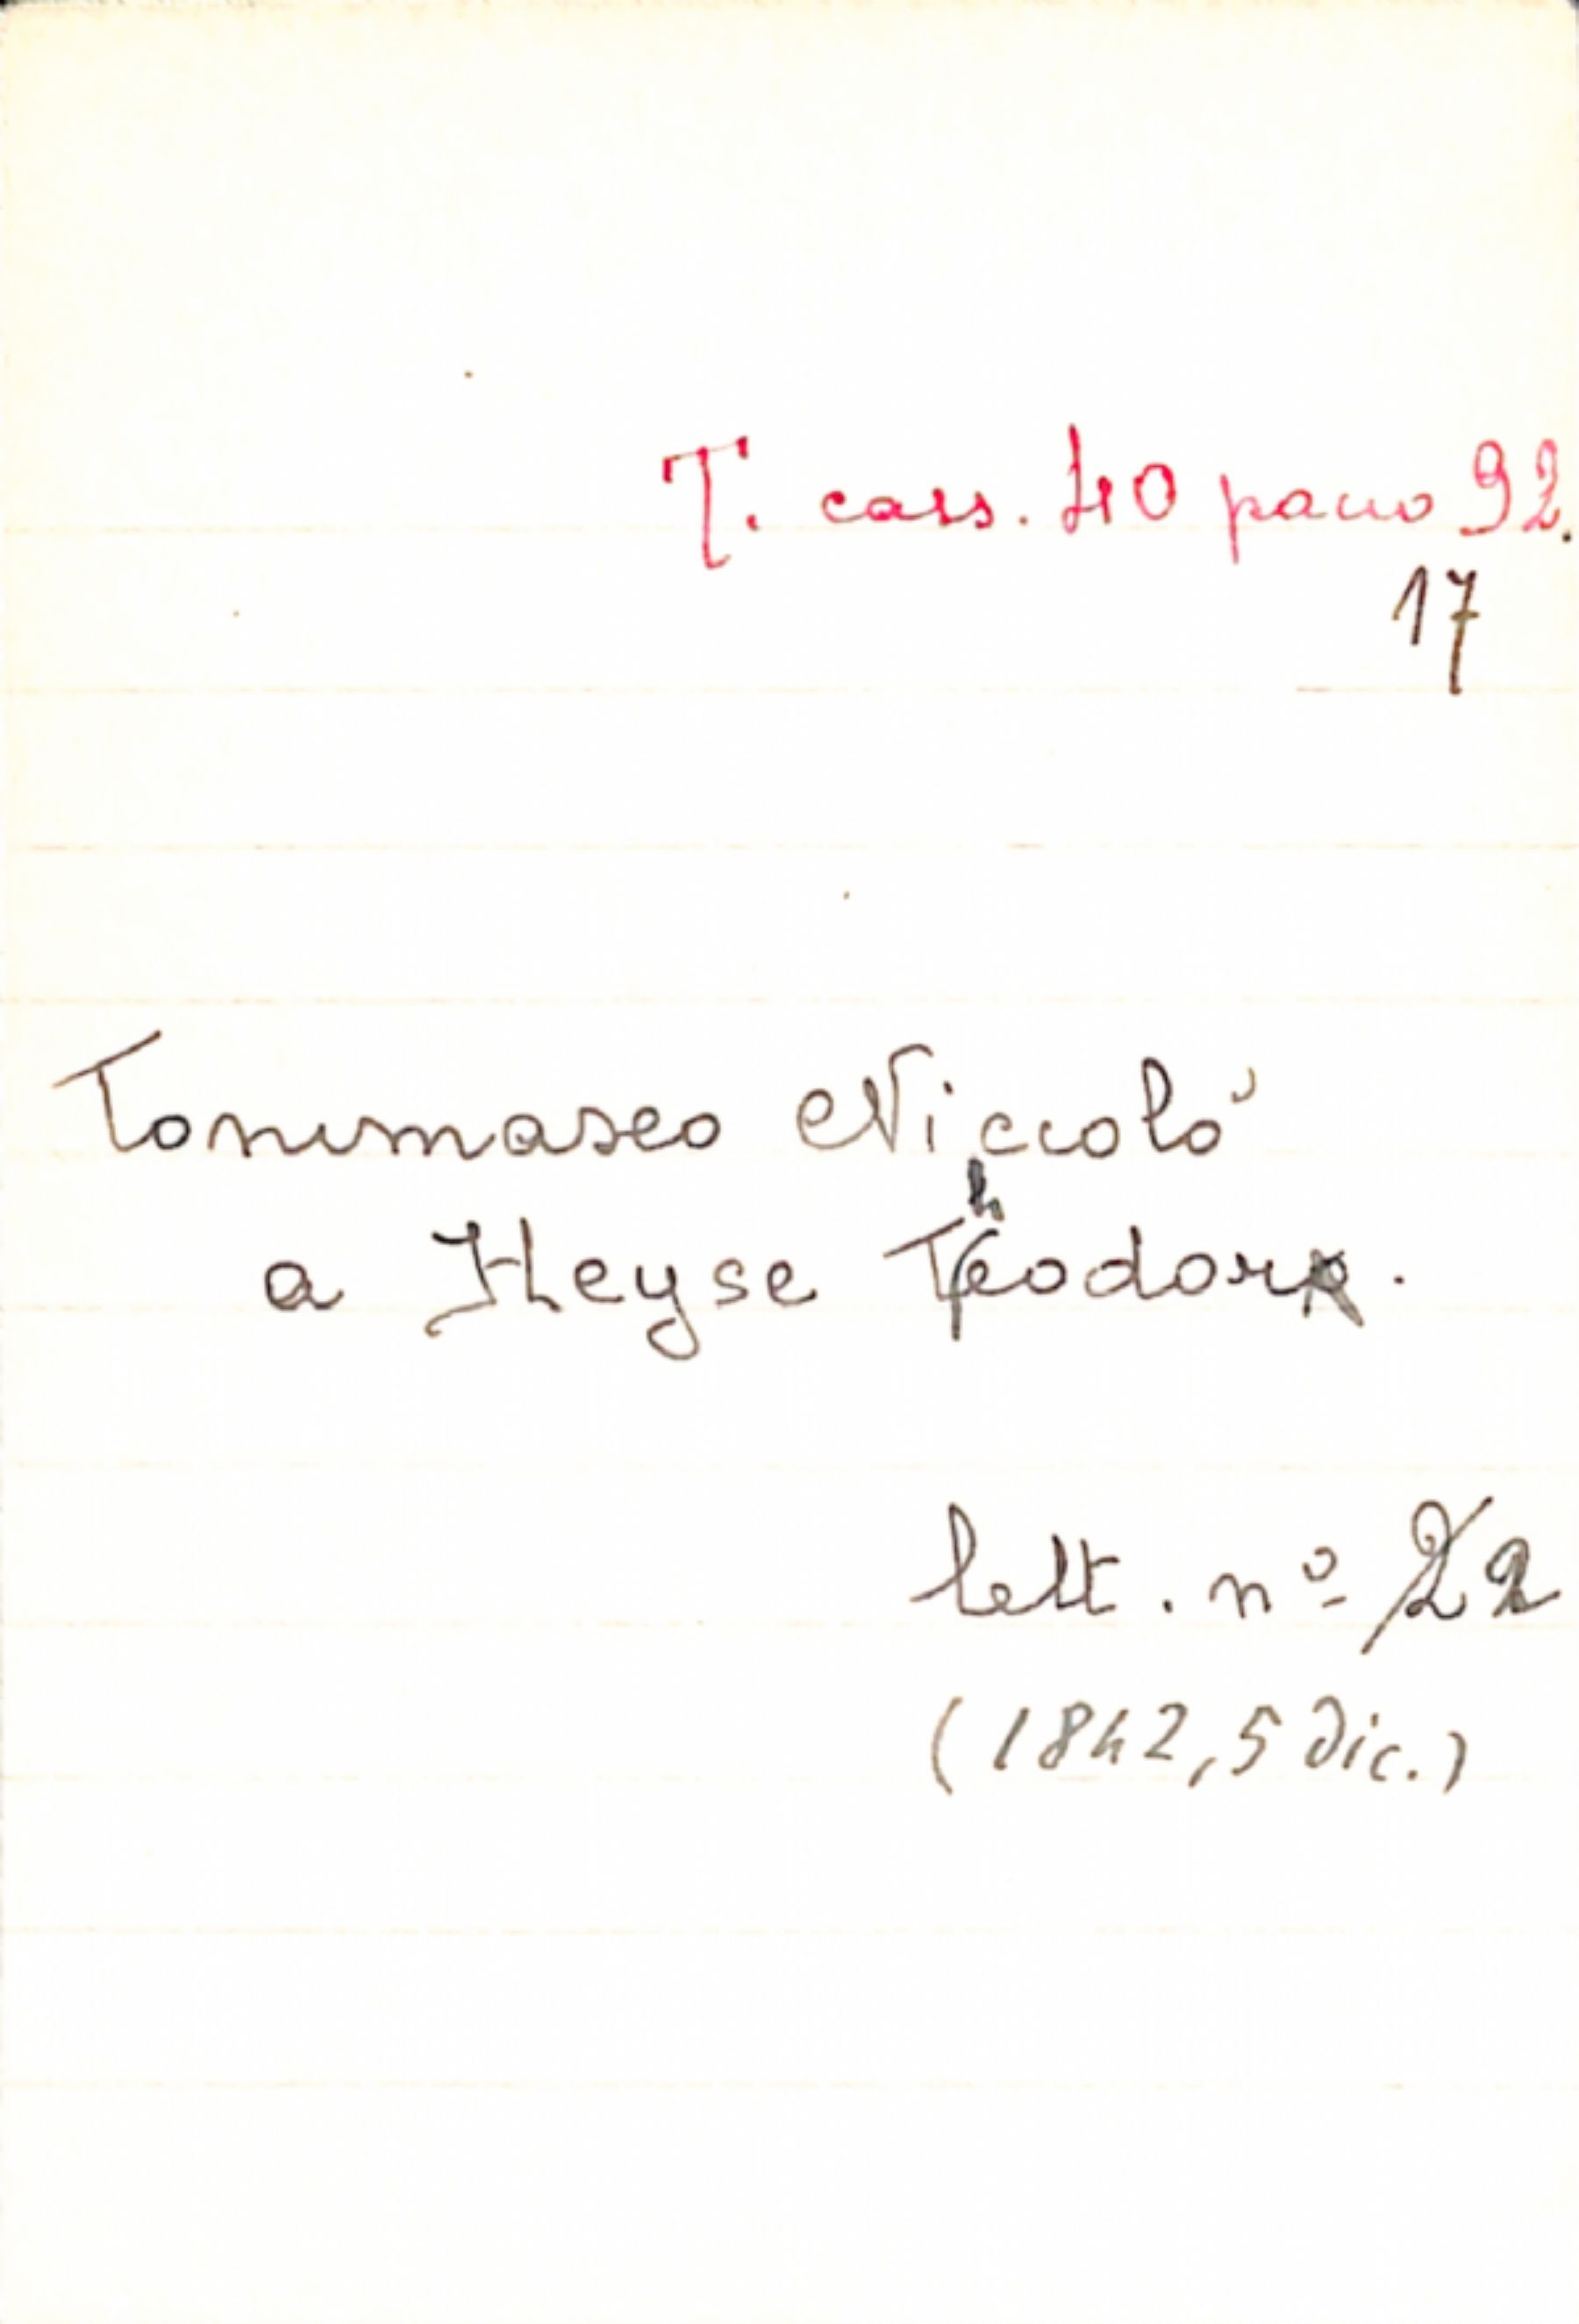 T. cass. 40 pacco 92.
17
Tommaseo Niccolò
a Heyse Theodor.
lett. nº 2
(1842, 5 dic.)